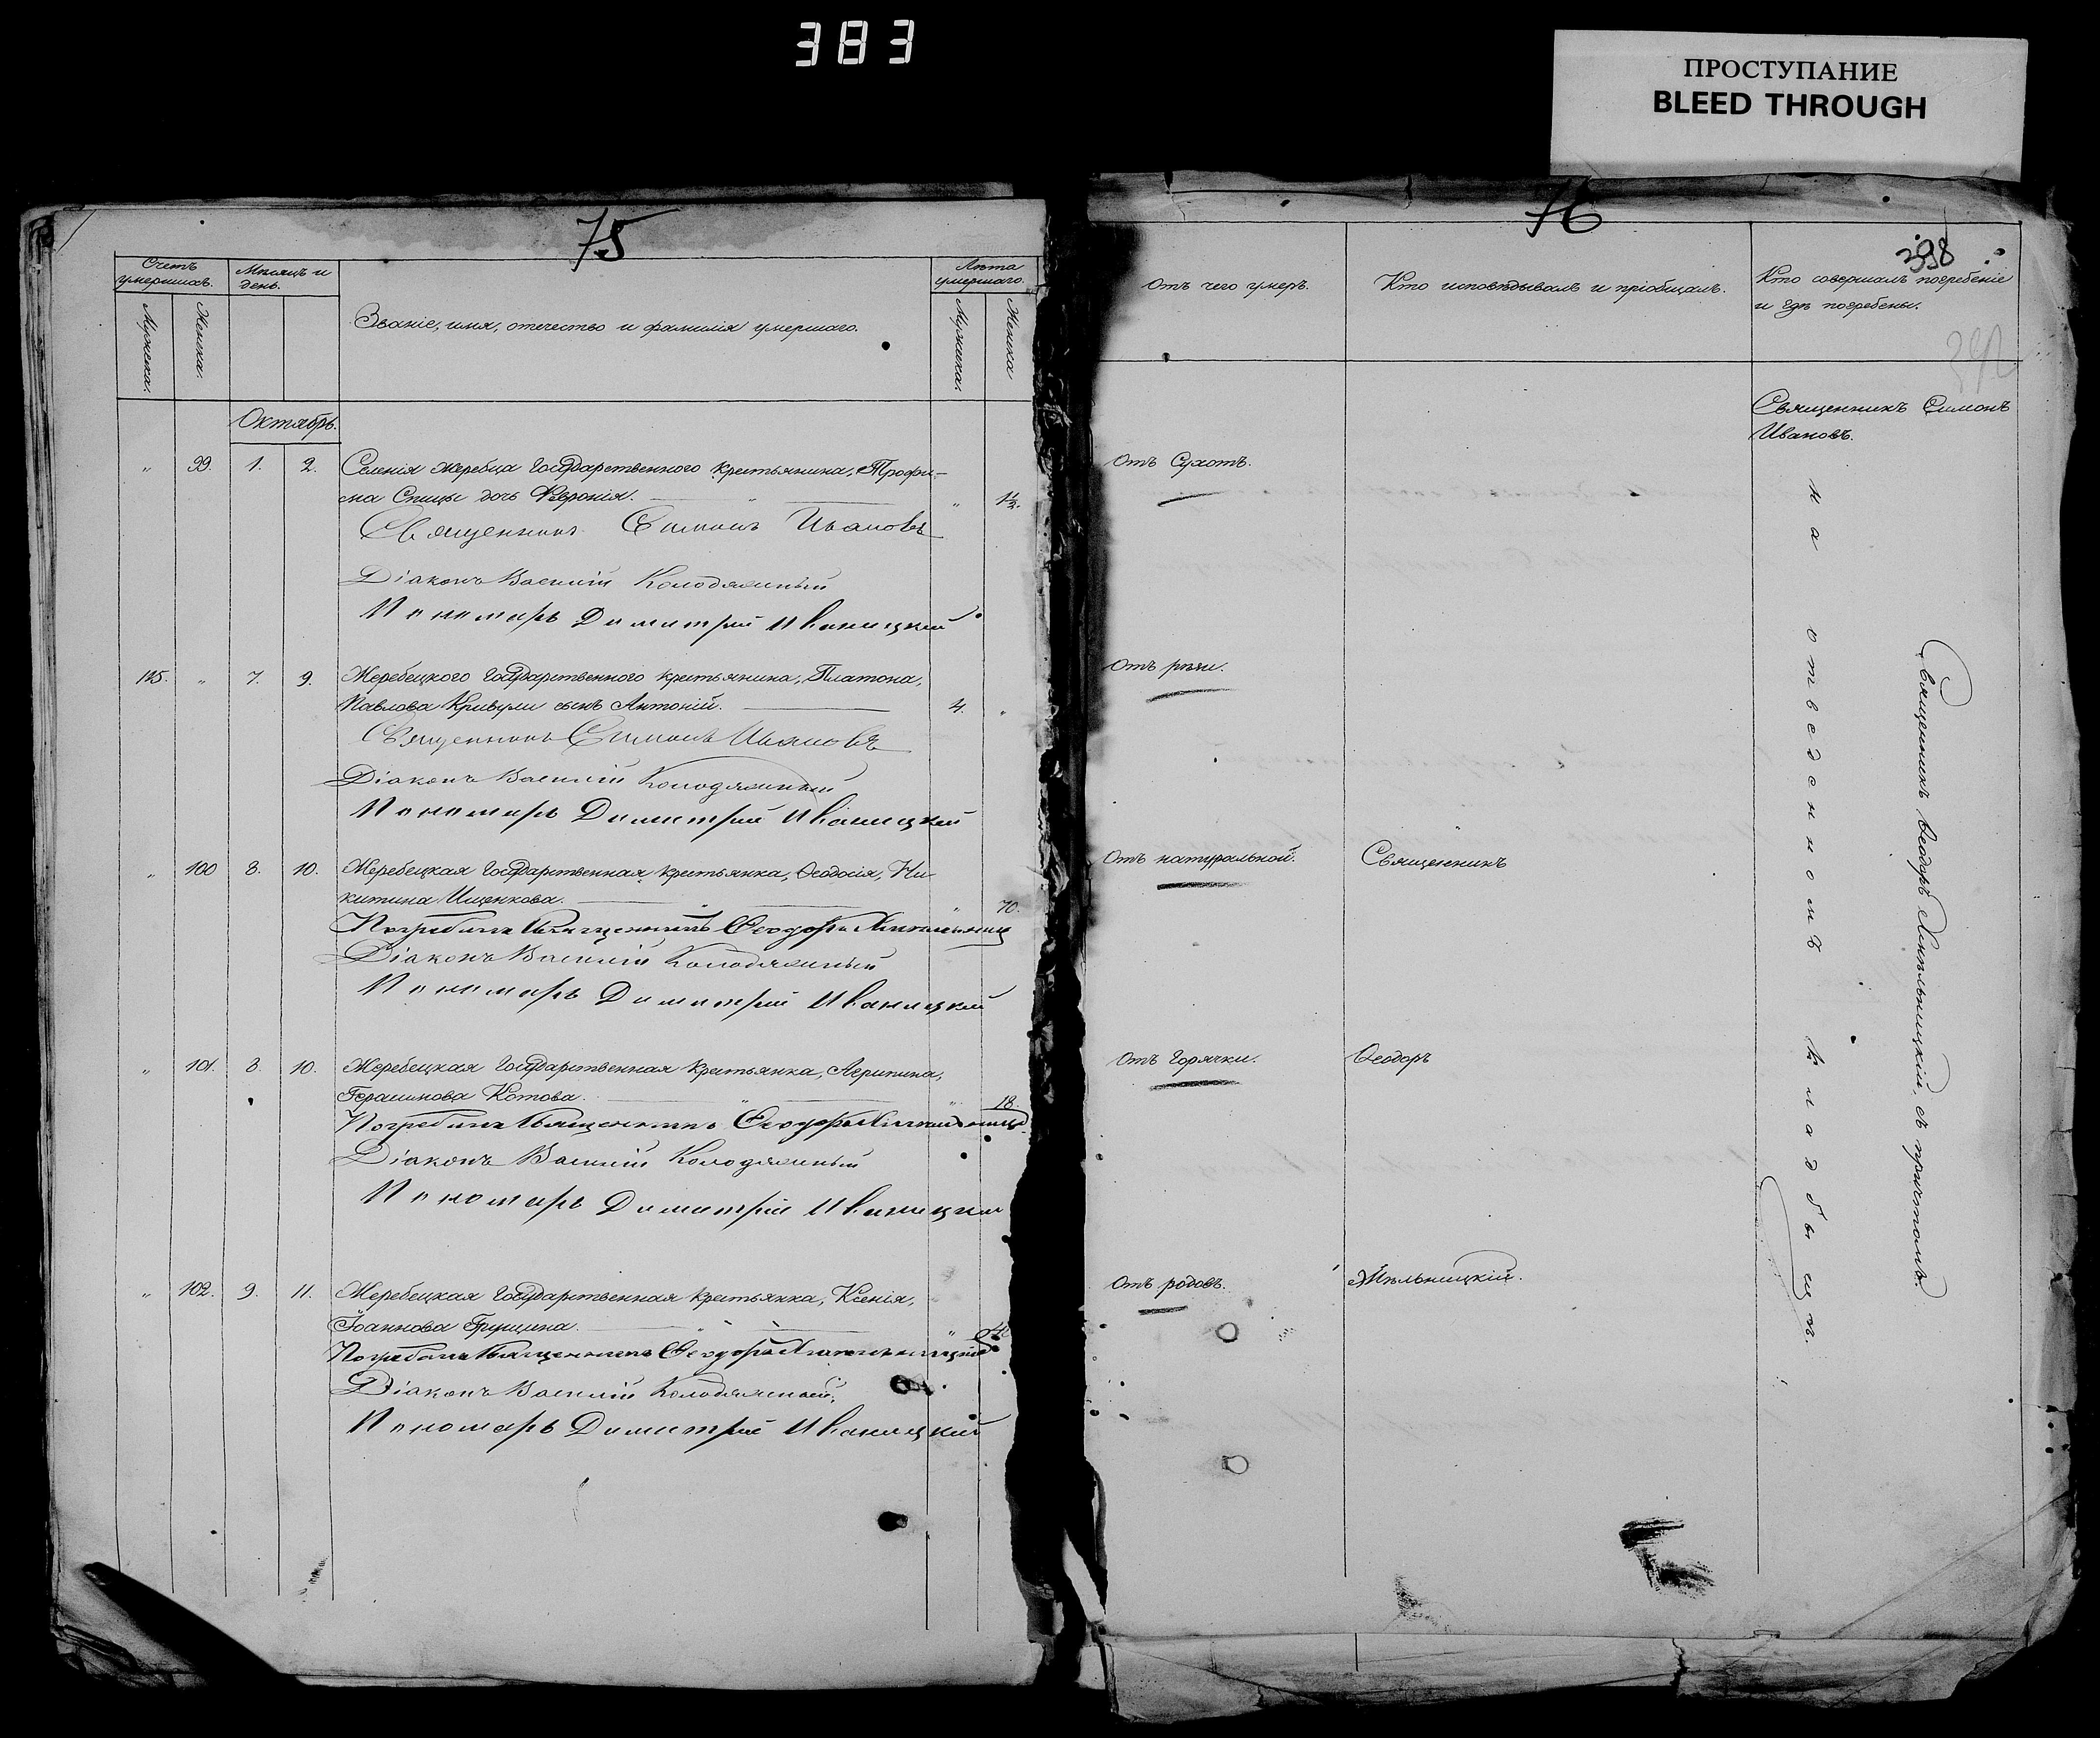 383
ПРОСТУПАНИЕ
BLEED THROUGH
75
Счетъ умершихъ.
Мѣсяцъ и день.
Званіе, имя, отечество и фамилія умершаго.
Лѣта умершаго.
Мужеска.
Женска.
Мужеска.
Женска
Октябрь.
" 99. 1. 2. Селенія Жеребца Государственного крестьянина, Трофи-
ма Спицы дочь Феvронія. " " 1½.
Священникъ Симонъ Ивановъ
Діаконъ Василій Колодяжный
Пономарь Димитрій Иваницкій
125. " 7. 9. Жеребецкого Государственного крестьянина, Платона,
Павлова Кривули сынъ Антоній. 4. "
Священникъ Симонъ Ивановъ
Діаконъ Василій Колодяжный
Пономарь Димитрій Иваницкій
" 100 8. 10. Жеребецкая Государственная крестьянка, Ѳеодосія, Ни-
китина Ищенкова. " 70.
Погребалъ Священникъ Ѳеодоръ Мѣльницкій
Діаконъ Василій Колодяжный
Пономарь Димитрій Иваницкій
" 101. 8. 10. Жеребецкая Государственная крестьянка, Агрипина,
Герасимова Котова. " " 18.
Погребалъ Священникъ Ѳеодоръ Мѣльницкій
Діаконъ Василій Колодяжный
Пономарь Димитрій Иваницкій
" 102. 9. 11. Жеребецкая Государственная крестьянка, Ксенія,
Іоаннова Грущина. " "
Погребалъ Священникъ Ѳеодоръ Мѣльницкій
Діаконъ Василій Колодяжный
Пономарь Димитрій Иваницкій
76
398
Отъ чего умеръ.
Кто исповѣдывалъ и пріобщалъ.
Кто совершалъ погребеніе
и гдѣ погребены.
Священникъ Симонъ
Ивановъ.
Отъ Сухотъ.
Отъ рѣзи.
Отъ натуральной. Священникъ
Отъ Горячки. Ѳеодоръ
Отъ родовъ. Мѣльницкій.
на отведенномъ кладбищѣ.
Священникъ Ѳеодоръ Мѣльницкій, съ причтомъ.